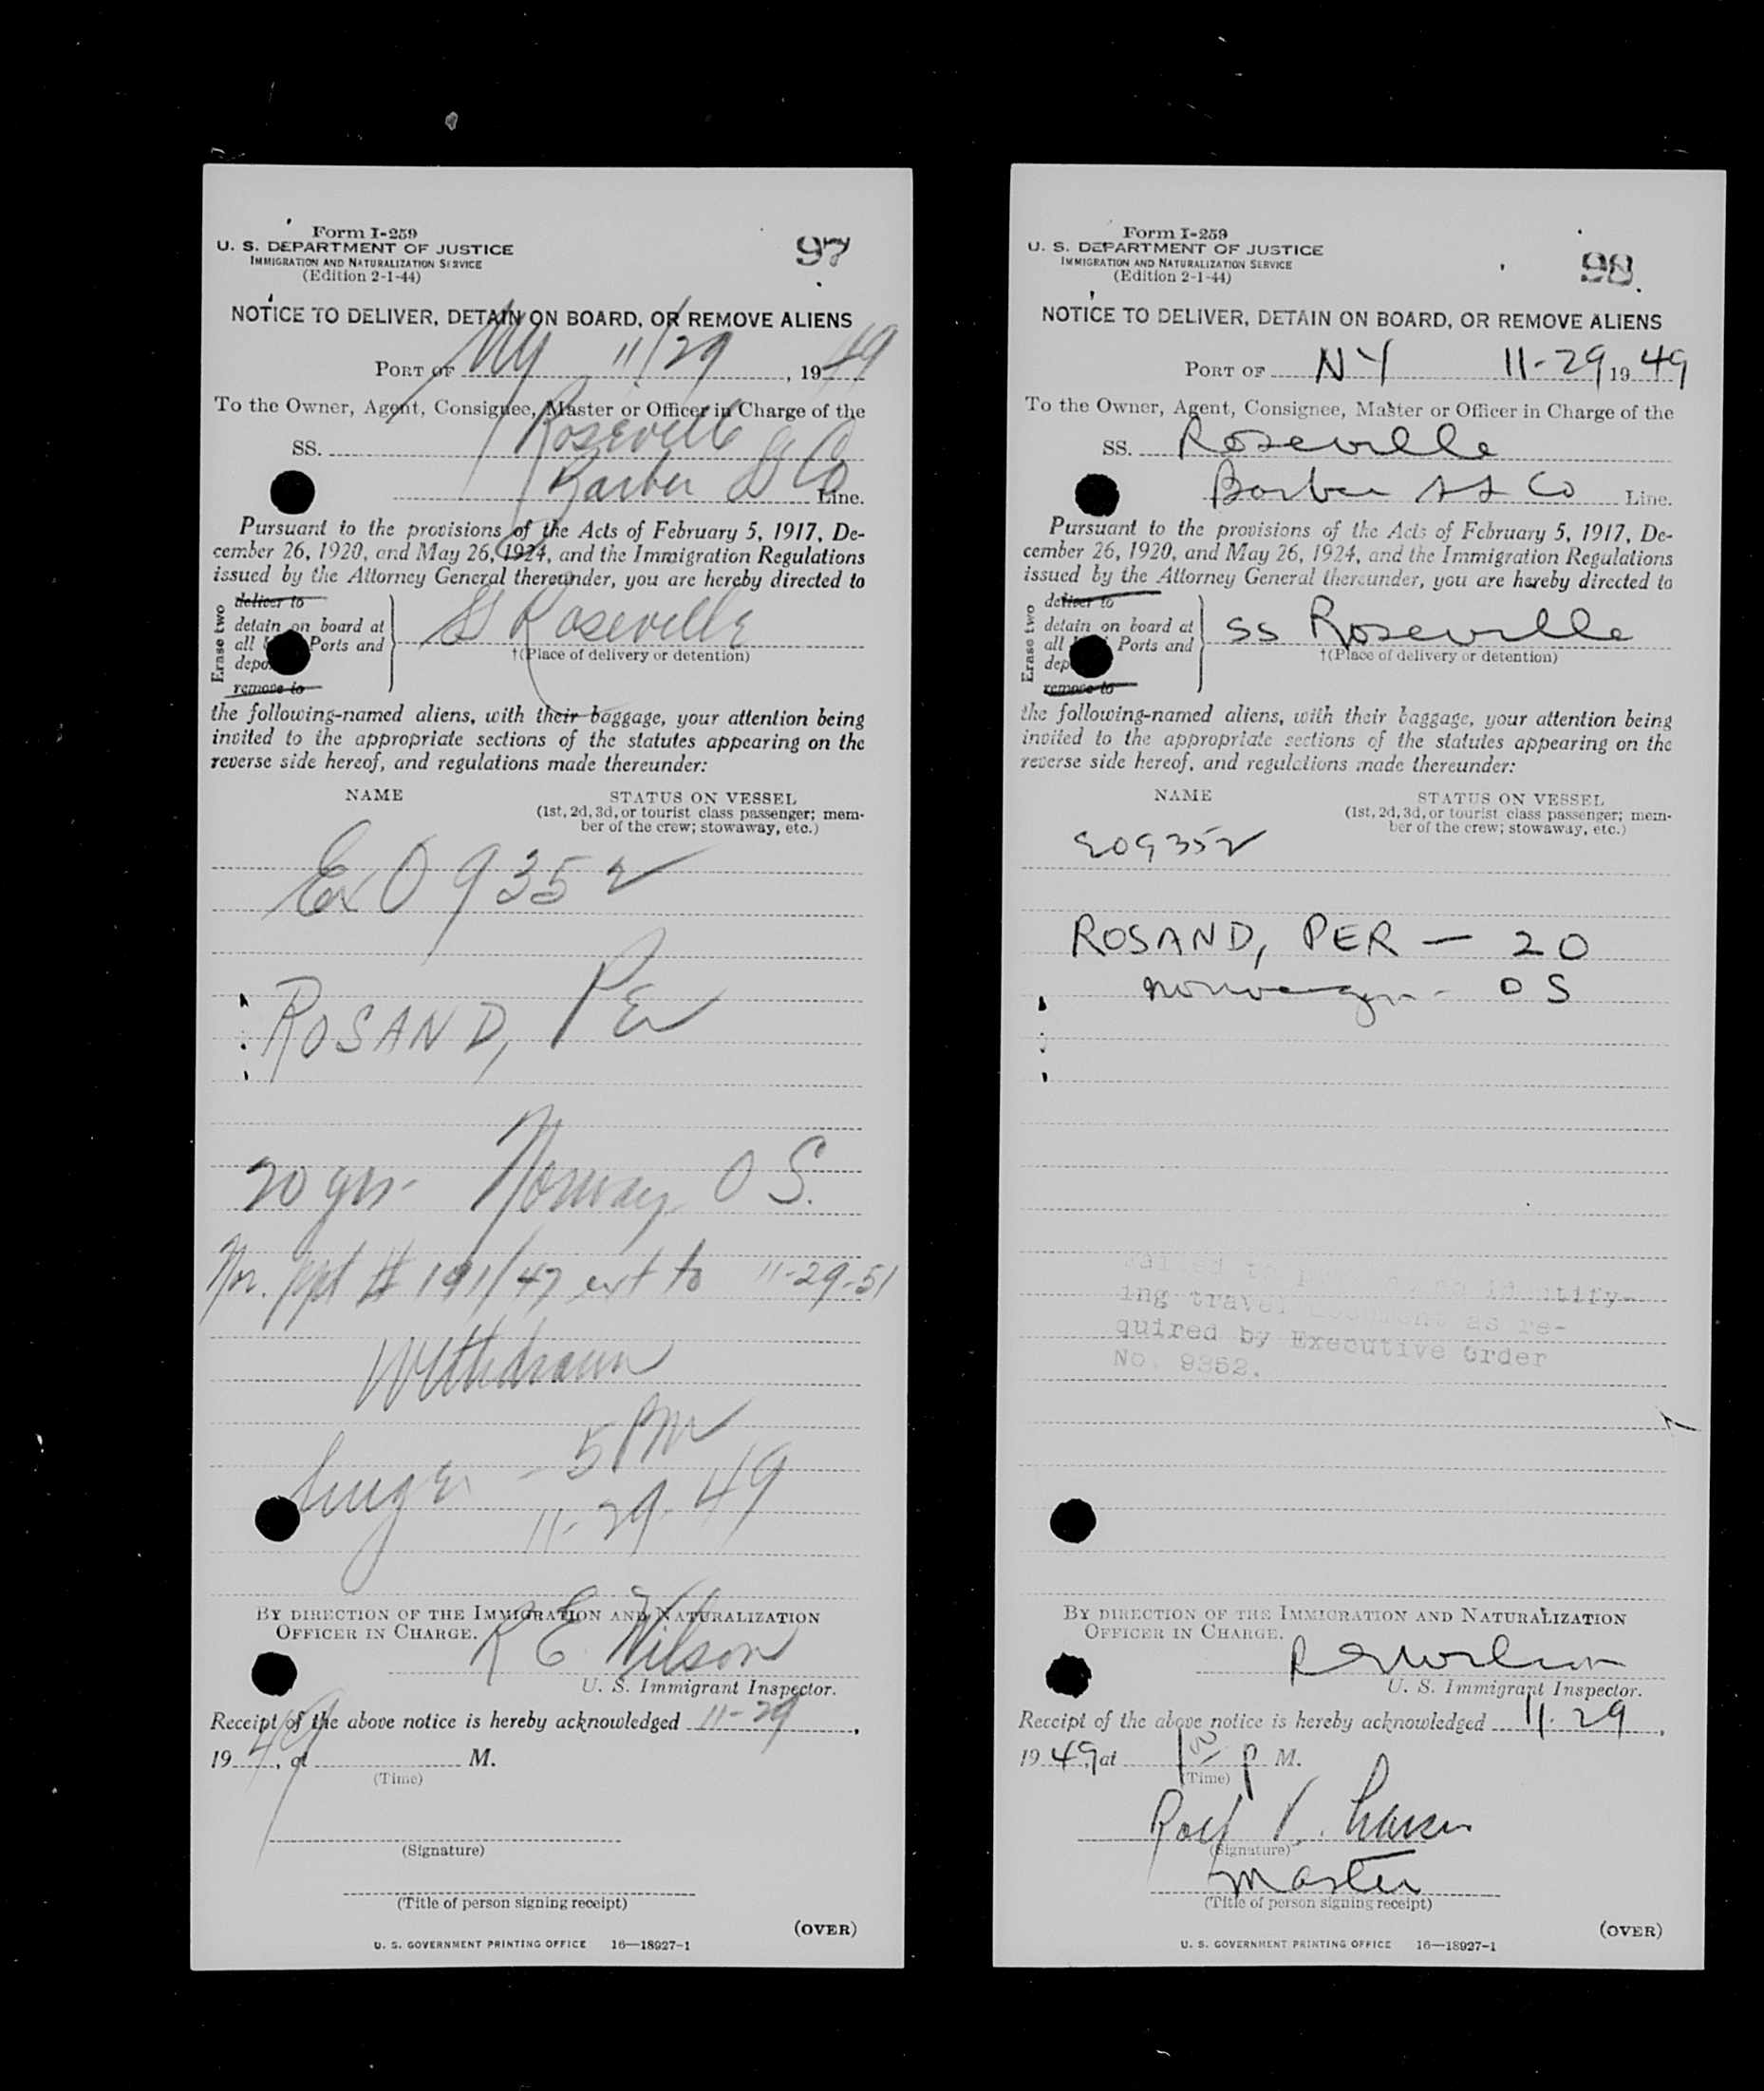 Form I-259
U. S. DEPARTMENT OF JUSTICE
IMMIGRATION AND NATURALIZATION SERVICE
(Edition 2-1-44)
97
NOTICE TO DELIVER, DETAIN ON BOARD, OR REMOVE ALIENS
PORT OF NY 11/29, 1949
To the Owner, Agent, Consignee, Master or Officer in Charge of the
SS. Roseville
Barber SS Co Line.
Pursuant to the provisions of the Acts of February 5, 1917, De-
cember 26, 1920, and May 26, 1924, and the Immigration Regulations
issued by the Attorney General thereunder, you are hereby directed to
Erase two
deliver to
detain on board at
all Ports and
depo
remove to
SS Roseville
†(Place of delivery or detention)
the following-named aliens, with their baggage, your attention being
invited to the appropriate sections of the statutes appearing on the
reverse side hereof, and regulations made thereunder:
NAME STATUS ON VESSEL
(1st, 2d, 3d, or tourist class passenger; mem-
ber of the crew; stowaway, etc.)
Ex O 9352
ROSAND, Per
20 yrs - Norway O S.
Nor. ppt # 191/47 ext to 11-29-51
Withdrawn
- 5 PM
11-29-49
BY DIRECTION OF THE IMMIGRATION AND NATURALIZATION
OFFICER IN CHARGE.
R E Wilson
U. S. Immigrant Inspector.
Receipt of the above notice is hereby acknowledged 11-29,
1949, at M.
(Time)
(Signature)
(Title of person signing receipt)
(OVER)
U. S. GOVERNMENT PRINTING OFFICE 16—18927-1
Form I-259
U. S. DEPARTMENT OF JUSTICE
IMMIGRATION AND NATURALIZATION SERVICE
(Edition 2-1-44)
98
NOTICE TO DELIVER, DETAIN ON BOARD, OR REMOVE ALIENS
PORT OF NY 11-29, 1949
To the Owner, Agent, Consignee, Master or Officer in Charge of the
SS. Roseville
Barber SS Co Line.
Pursuant to the provisions of the Acts of February 5, 1917, De-
cember 26, 1920, and May 26, 1924, and the Immigration Regulations
issued by the Attorney General thereunder, you are hereby directed to
Erase two
deliver to
detain on board at
all Ports and
dep
remove to
SS Roseville
†(Place of delivery or detention)
the following-named aliens, with their baggage, your attention being
invited to the appropriate sections of the statutes appearing on the
reverse side hereof, and regulations made thereunder:
NAME STATUS ON VESSEL
(1st, 2d, 3d, or tourist class passenger; mem-
ber of the crew; stowaway, etc.)
EO9352
ROSAND, PER — 20
Norwegian - O S
Failed to identify-
ing travel document as re-
quired by Executive Order
No. 9352.
BY DIRECTION OF THE IMMIGRATION AND NATURALIZATION
OFFICER IN CHARGE.
R E Wilson
U. S. Immigrant Inspector.
Receipt of the above notice is hereby acknowledged 11.29,
1949, at P M.
(Time)
(Signature)
Master
(Title of person signing receipt)
(OVER)
U. S. GOVERNMENT PRINTING OFFICE 16—18927-1